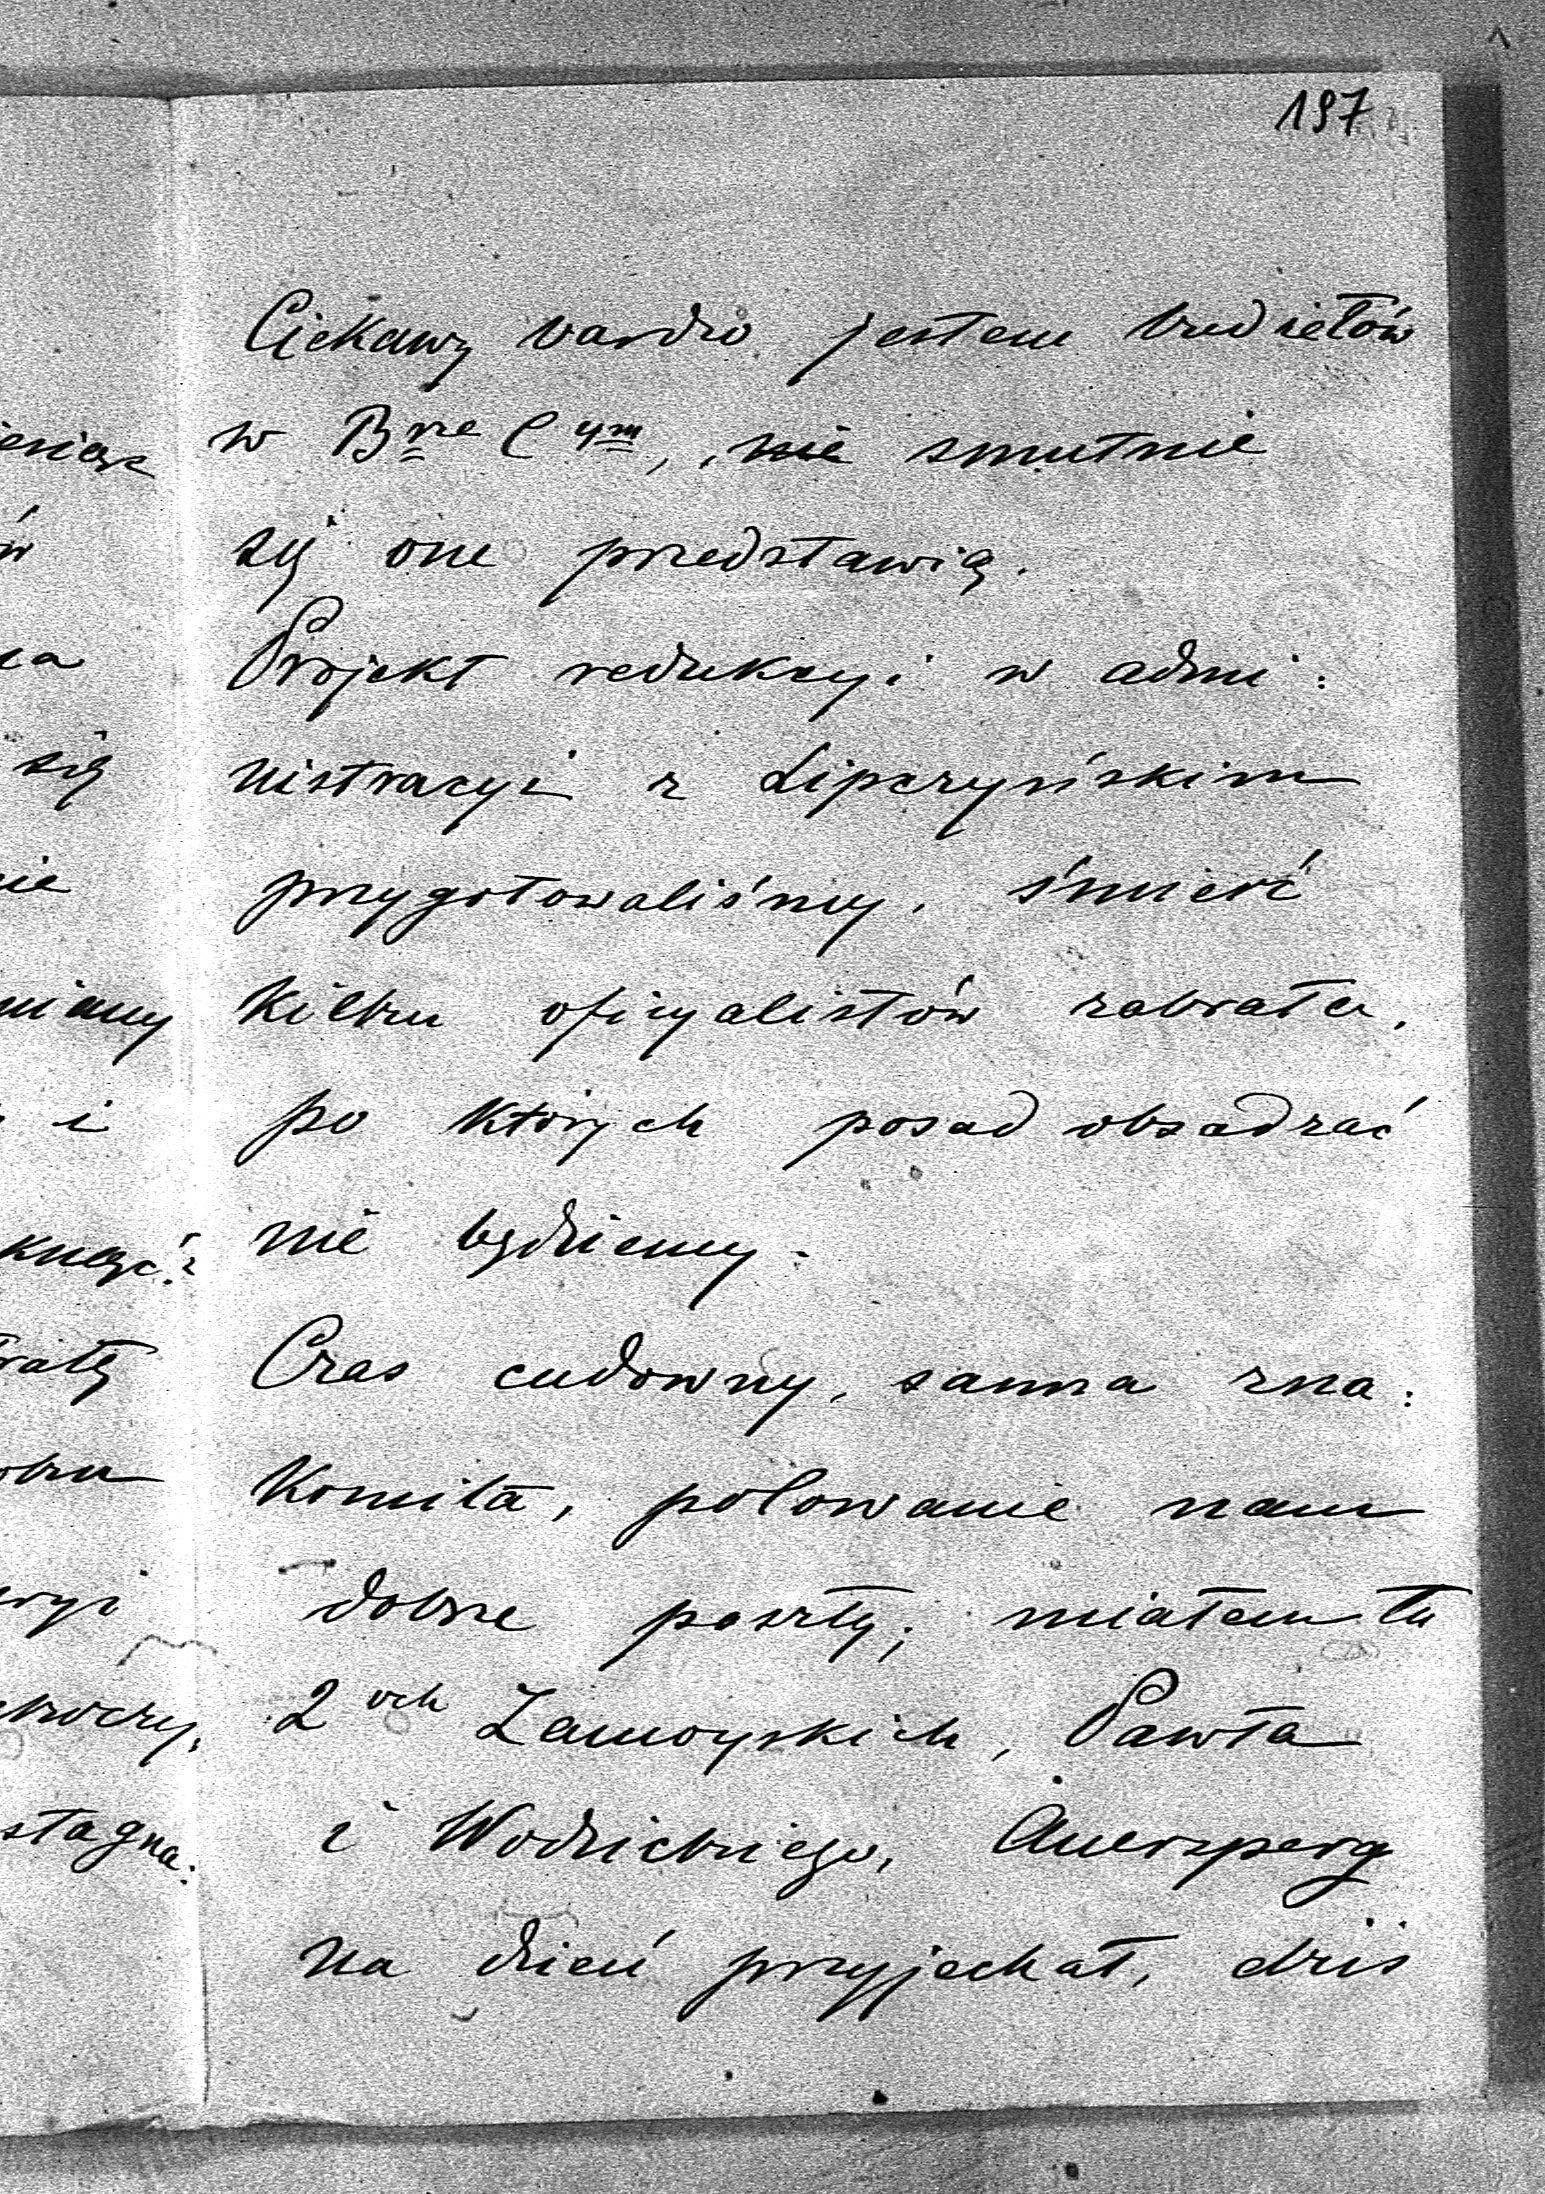 197
Ciekawy bardzo jestem budżetów
w B<sup>rze</sup> C<sup>ym</sup>, nie smutnie
się one przedstawią.
Projekt redukcyi w admi:
nistracyi z Lipczyńskim
przygotowaliśmy, śmierć
kilku oficyalistów zabrała,
po których posad obsadzać
nie będziemy.
Czas cudowny, sanna zna:
komita, polowanie nam
dobrze poszły; miałem tu
2<sup>och</sup> Zamoyskich, Pawła
i Wodzickiego, Auersperg
na dzień przyjechał, dziś
ów
się
nie
i
stagna: